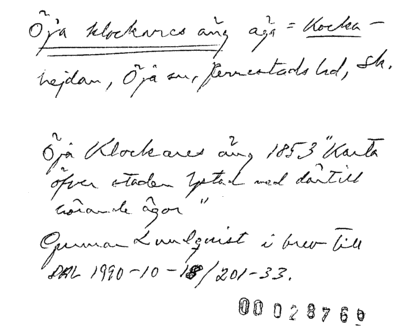 Öjä klockares äng äga = Kocka-
hejdan, Öjä sn, Herrestads hd, Sk.
Öjä Klockares äng 1853 "Karta
öfver staden Ystad med därtill
hörande ägor"
Gunnar Lundquist i brev till
DAL 1990-10-18/201-33.
00028760